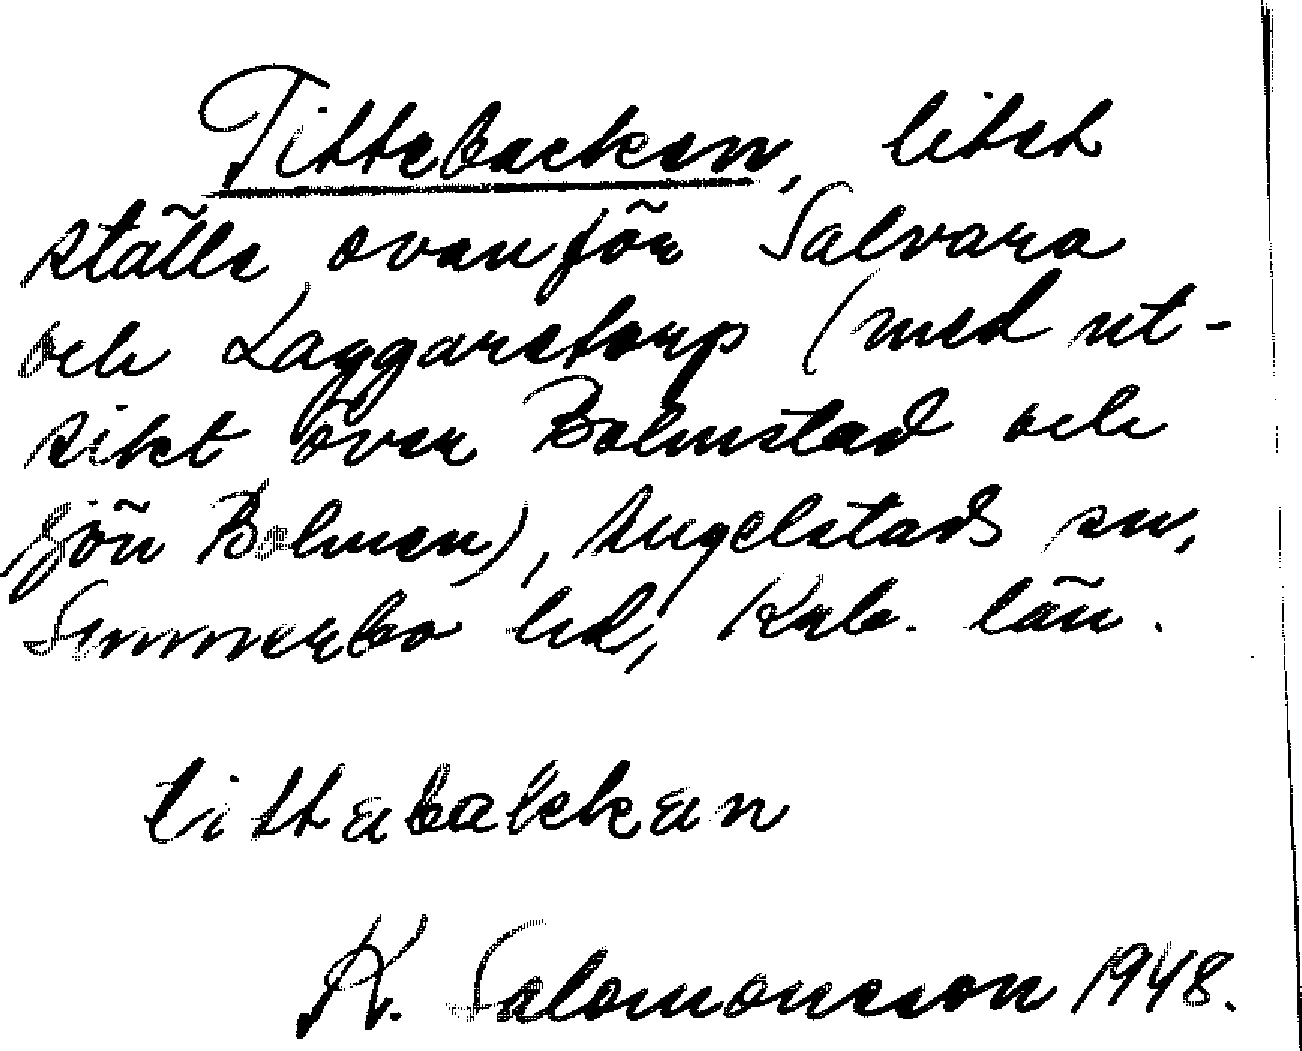 Tittebacken, litet
ställe ovanför Salvara
och Laggarstorp (med ut-
sikt över Bolmstad och
sjön Bolmen), Angelstads sn,
Sunnerbo hd, Krb. län.
tittabakkan
K. Salomonsson 1948.